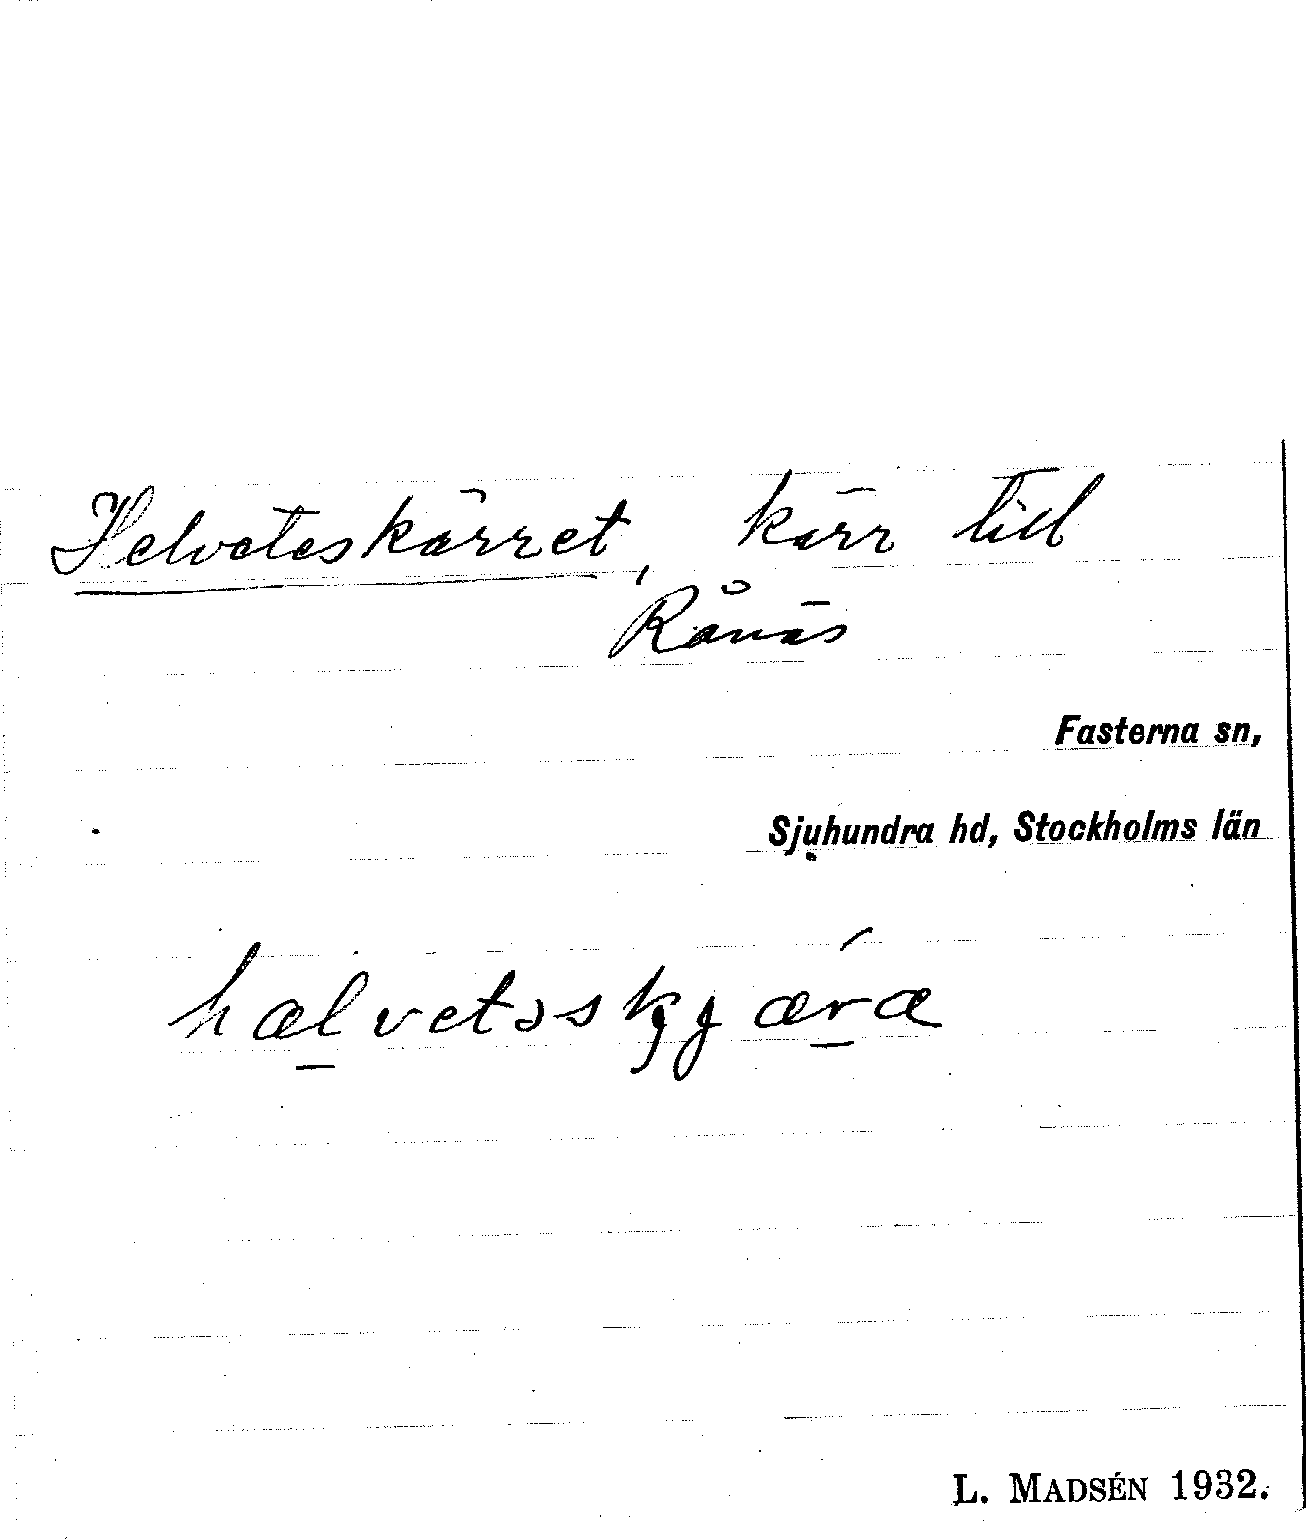 Helveteskärret, kärr till
Rånäs
Fasterna sn,
Sjuhundra hd, Stockholms län
hælvetəskjæ̀ræ
L. MADSÉN 1932.